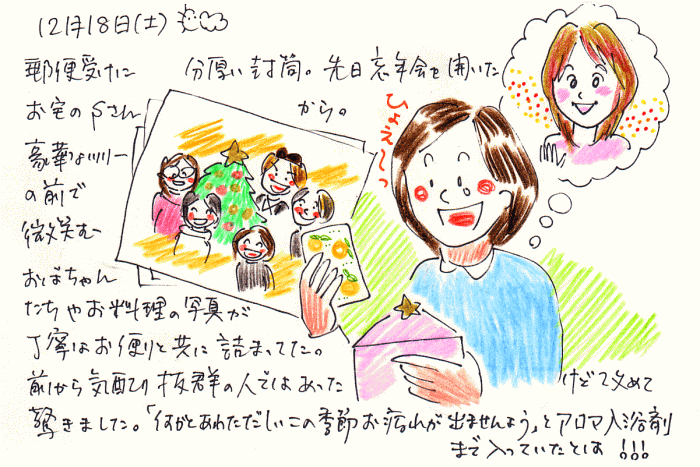 12月18日(土)
郵便受けに 分厚い封筒。先日忘年会を開いた
お宅のSさん から。
ひょえ〜っ
豪華なツリー
の前で
微笑む
おばちゃん
たちやお料理の写真が
丁寧なお便りと共に詰まってた。
前から気配り抜群の人ではあった けど改めて
驚きました。「何かとあわただしいこの季節お疲れが出ませんよう」とアロマ入浴剤
まで入っていたとは!!!